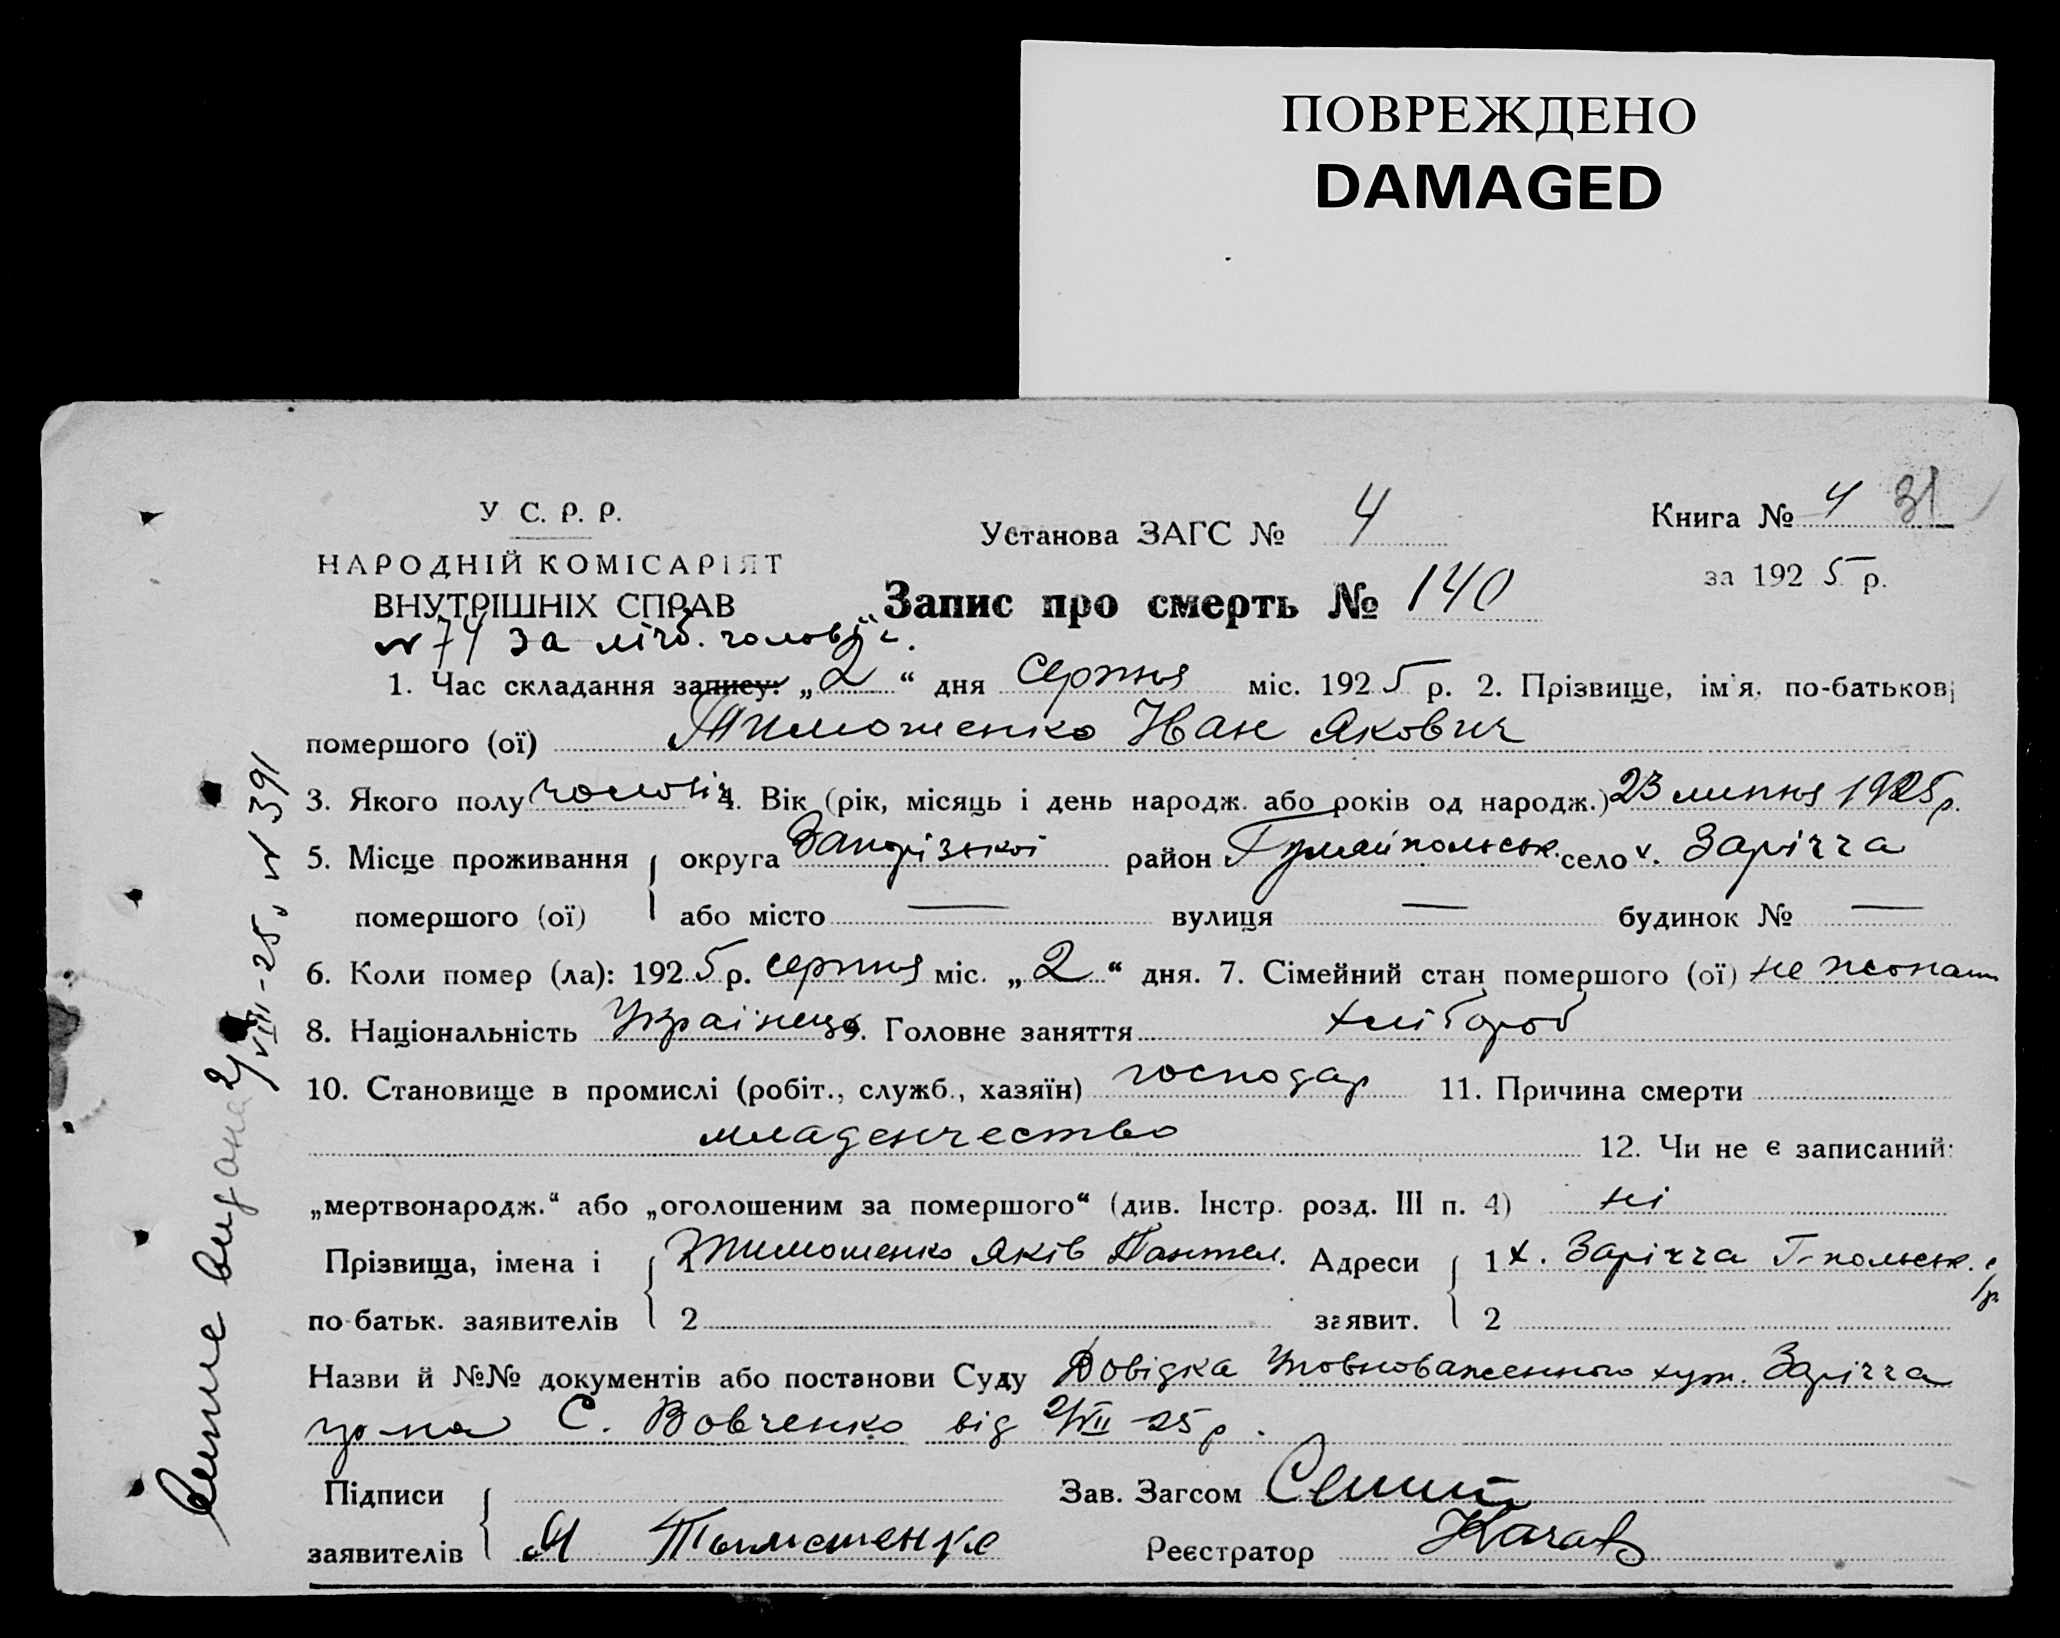 ПОВРЕЖДЕНО
DAMAGED
У С. Р. Р.
НАРОДНІЙ КОМІСАРІЯТ
ВНУТРІШНІХ СПРАВ
Установа ЗАГС № 4
Книга № 4 31
за 1925 р.
Запис про смерть № 140
№ 74 за лічб. чоловіч.
1. Час складання запису: „2“ дня серпня міс. 1925 р. 2. Прізвище, ім'я, по-батькові
помершого (ої) Тимошенко Иван Якович
3. Якого полу чоловіч. 4. Вік (рік, місяць і день народж. або років од народж.) 23 липня 1925 р.
5. Місце проживання округа Запорізької район Гуляйпольськ. село х. Зарічча
помершого (ої) або місто — вулиця — будинок № —
6. Коли помер (ла): 1925 р. серпня міс. „2“ дня. 7. Сімейний стан помершого (ої) не жонат
8. Національність Українець 9. Головне заняття хлібороб
10. Становище в промислі (робіт., служб., хазяїн) господар 11. Причина смерти
младенчество 12. Чи не є записаний:
„мертвонародж.“ або „оголошеним за помершого“ (див. Інстр. розд. III п. 4) ні
Прізвища, імена і 1 Тимошенко Яків Пантел. Адреси 1 х. Зарічча Г-польськ.
по-батьк. заявителів 2 заявит. 2
Назви й №№ документів або постанови Суду Довідка Уповноваженного хут. Зарічча
гр-на С. Вовченко від 2/VII-25 р.
Підписи Зав. Загсом
заявителів Тимошенко Реєстратор
видана 2/VIII-25, № 391